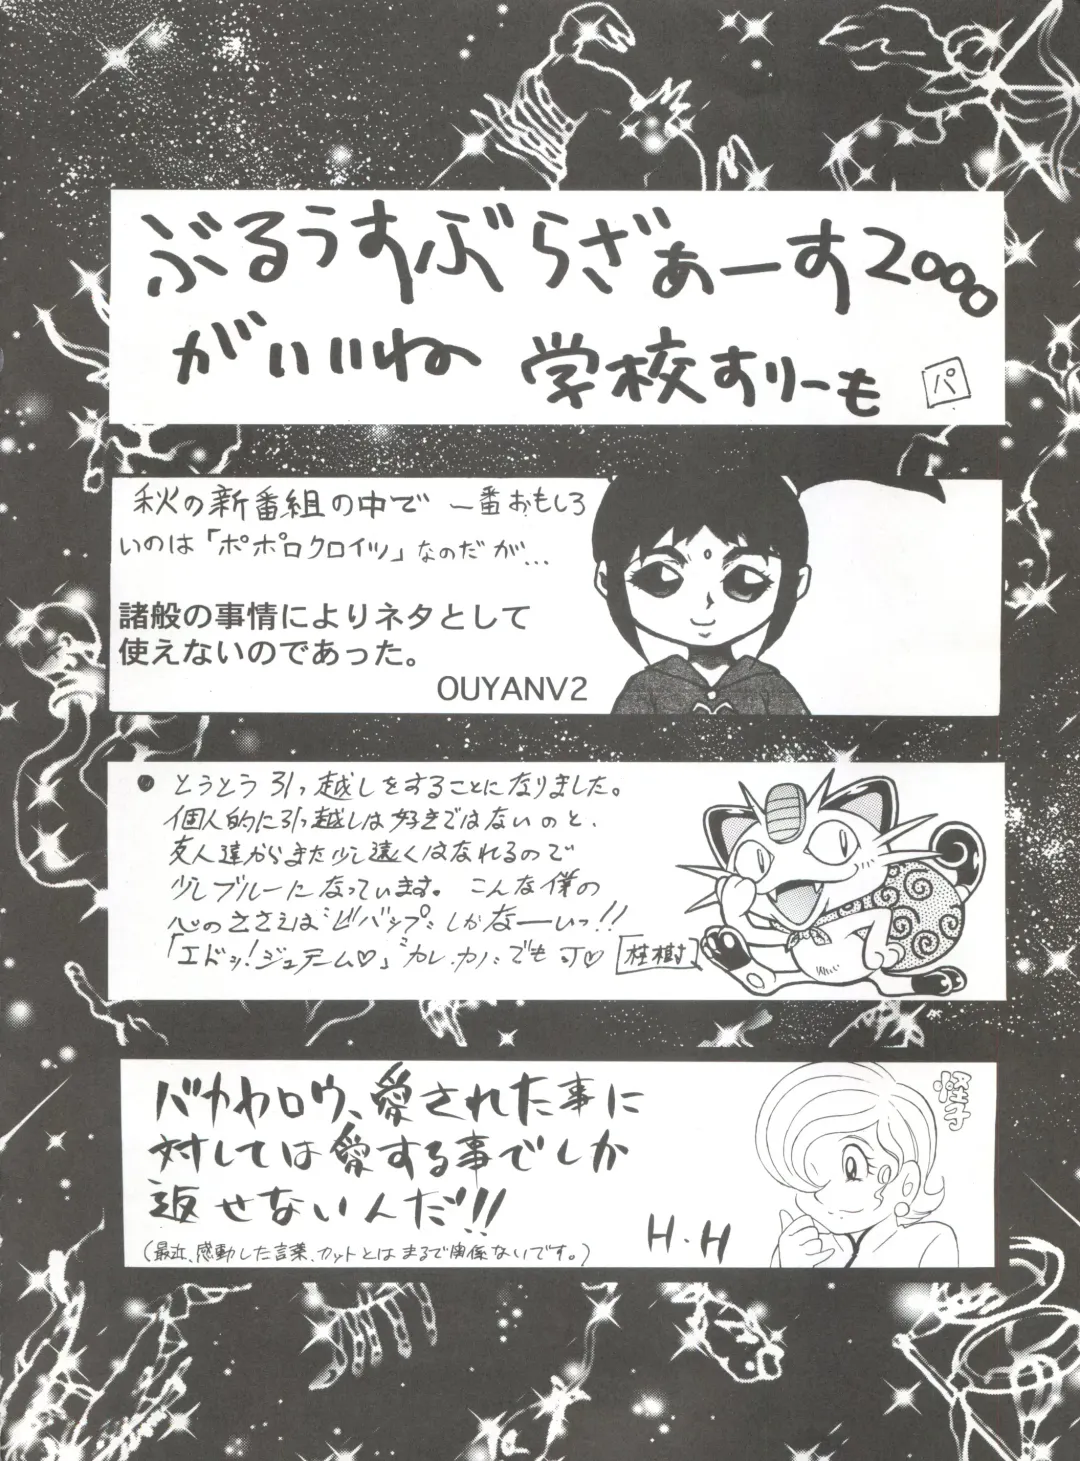 ぶるうすぶらざぁーす2000
がいいね 学校すりーも パ
秋の新番組の中で 一番おもしろ
いのは「ポポロクロイツ」なのだが…
諸般の事情によりネタとして
使えないのであった。
OUYANV2
●とうとう引っ越しをすることになりました。
個人的に引っ越しは好きではないのと、
友人達からまた少し遠くはなれるので
少しブルーになっています。こんな僕の
心のささえは〝ビバップ〟しかなーいっ!!
「エドッ!ジュテーム♡」〝カレ・カノ〟でも可♡ [桂樹]
怪子
バカヤロウ、愛された事に
対しては愛する事でしか
返せないんだ!!
(最近、感動した言葉、カットとはまるで関係ないです。)
H.H